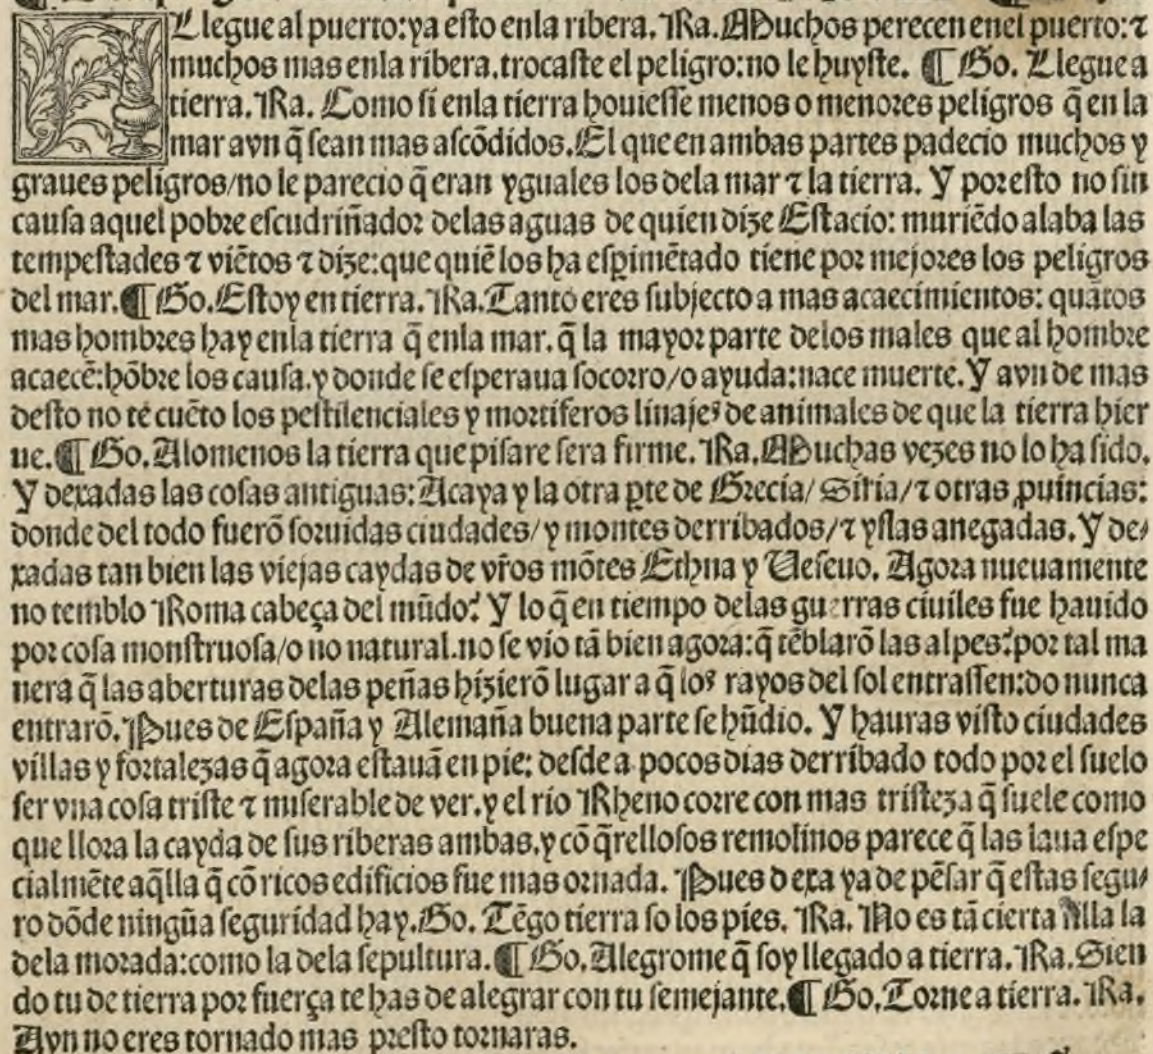 Llegue al puerto:ya esto enla ribera. Ra. Muchos perecen enel puerto:⁊
muchos mas enla ribera.trocaste el peligro:no le huyste. ¶ Go. Llegue a
tierra. Ra. Como si enla tierra houiesse menos o menores peligros q̃ en la
mar avn q̃ sean mas ascõdidos. El que en ambas partes padecio muchos y
graues peligros/no le parecio q̃ eran yguales los dela mar ⁊ la tierra. Y por esto no sin
causa aquel pobre escudriñador delas aguas de quien dize Estacio: muriẽdo alaba las
tempestades ⁊ viẽtos ⁊ dize:que quiẽ los ha esꝑimẽtado tiene por mejores los peligros
del mar. ¶ Go. Estoy en tierra. Ra. Tanto eres subjecto a mas acaecimientos: quãtos
mas hombres hay enla tierra q̃ enla mar. q̃ la mayor parte delos males que al hombre
acaecẽ:hõbre los causa.y donde se esperaua socorro/o ayuda:nace muerte. Y avn de mas
desto no te cuẽto los pestilenciales y mortiferos linajeꝰ de animales de que la tierra hier
ue. ¶ Go. Alomenos la tierra que pisare sera firme. Ra. Muchas vezes no lo ha sido.
Y dexadas las cosas antiguas: Acaya y la otra ꝑte de Grecia/ Siria/⁊ otras ꝓuincias:
donde del todo fuerõ soruidas ciudades/y montes derribados/⁊ yslas anegadas. Y de/
xadas tan bien las viejas caydas de vr̃os mõtes Ethna y Vesevo. Agora nueuamente
no temblo Roma cabeça del mũdo? Y lo q̃ en tiempo delas guerras ciuiles fue hauido
por cosa monstruosa/o no natural.no se vio tã bien agora:q̃ tẽblarõ las alpes?por tal ma
nera q̃ las aberturas delas peñas hizierõ lugar a q̃ loꝰ rayos del sol entrassen:do nunca
entrarõ. Pues de España y Alemaña buena parte se hũdio. Y hauras visto ciudades
villas y fortalezas q̃ agora estauã en pie: desde a pocos dias derribado todo por el suelo
ser vna cosa triste ⁊ miserable de ver.y el rio Rheno corre con mas tristeza q̃ suele como
que llora la cayda de sus riberas ambas.y cõ q̃rellosos remolinos parece q̃ las laua espe
cialmẽte aq̃lla q̃ cõ ricos edificios fue mas ornada. Pues dexa ya de pẽsar q̃ estas segu/
ro dõde ningũa seguridad hay. Go. Tẽgo tierra so los pies. Ra. No es tã cierta la
dela morada:como la dela sepultura. ¶ Go. Alegrome q̃ soy llegado a tierra. Ra. Sien
do tu de tierra por fuerça te has de alegrar con tu semejante. ¶ Go. Torne a tierra. Ra.
Avn no eres tornado mas presto tornaras.